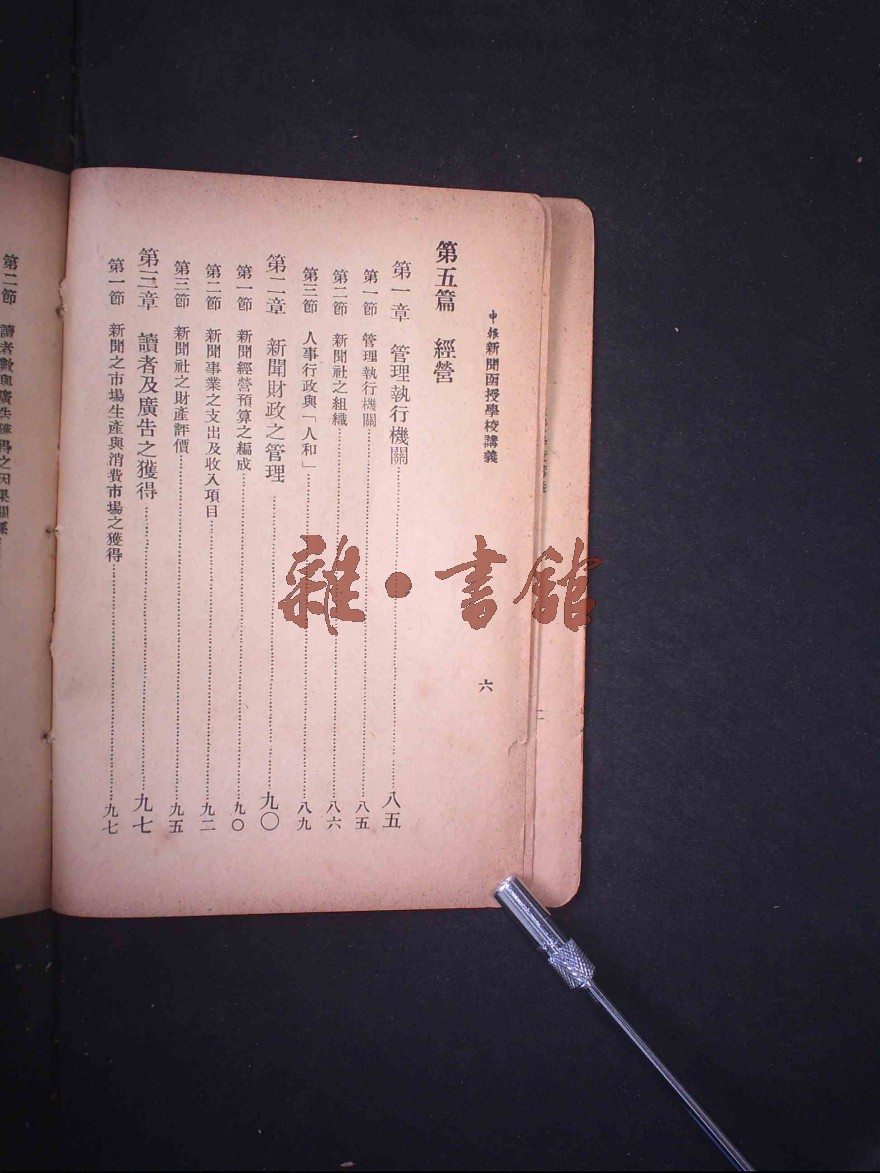 申報新聞函授學校講義
六
第五篇 經營
第一章 管理執行機關……八五
第一節 管理執行機關……八五
第二節 新聞社之組織……八六
第三節 人事行政與「人和」……八九
第二章 新聞財政之管理……九〇
第一節 新聞經營預算之編成……九〇
第二節 新聞事業之支出及收入項目……九二
第三節 新聞社之財產評價……九五
第三章 讀者及廣告之獲得……九七
第一節 新聞之市場生產與消費市場之獲得……九七
第二節 讀者數與廣告獲得之因果關係
雜•書館